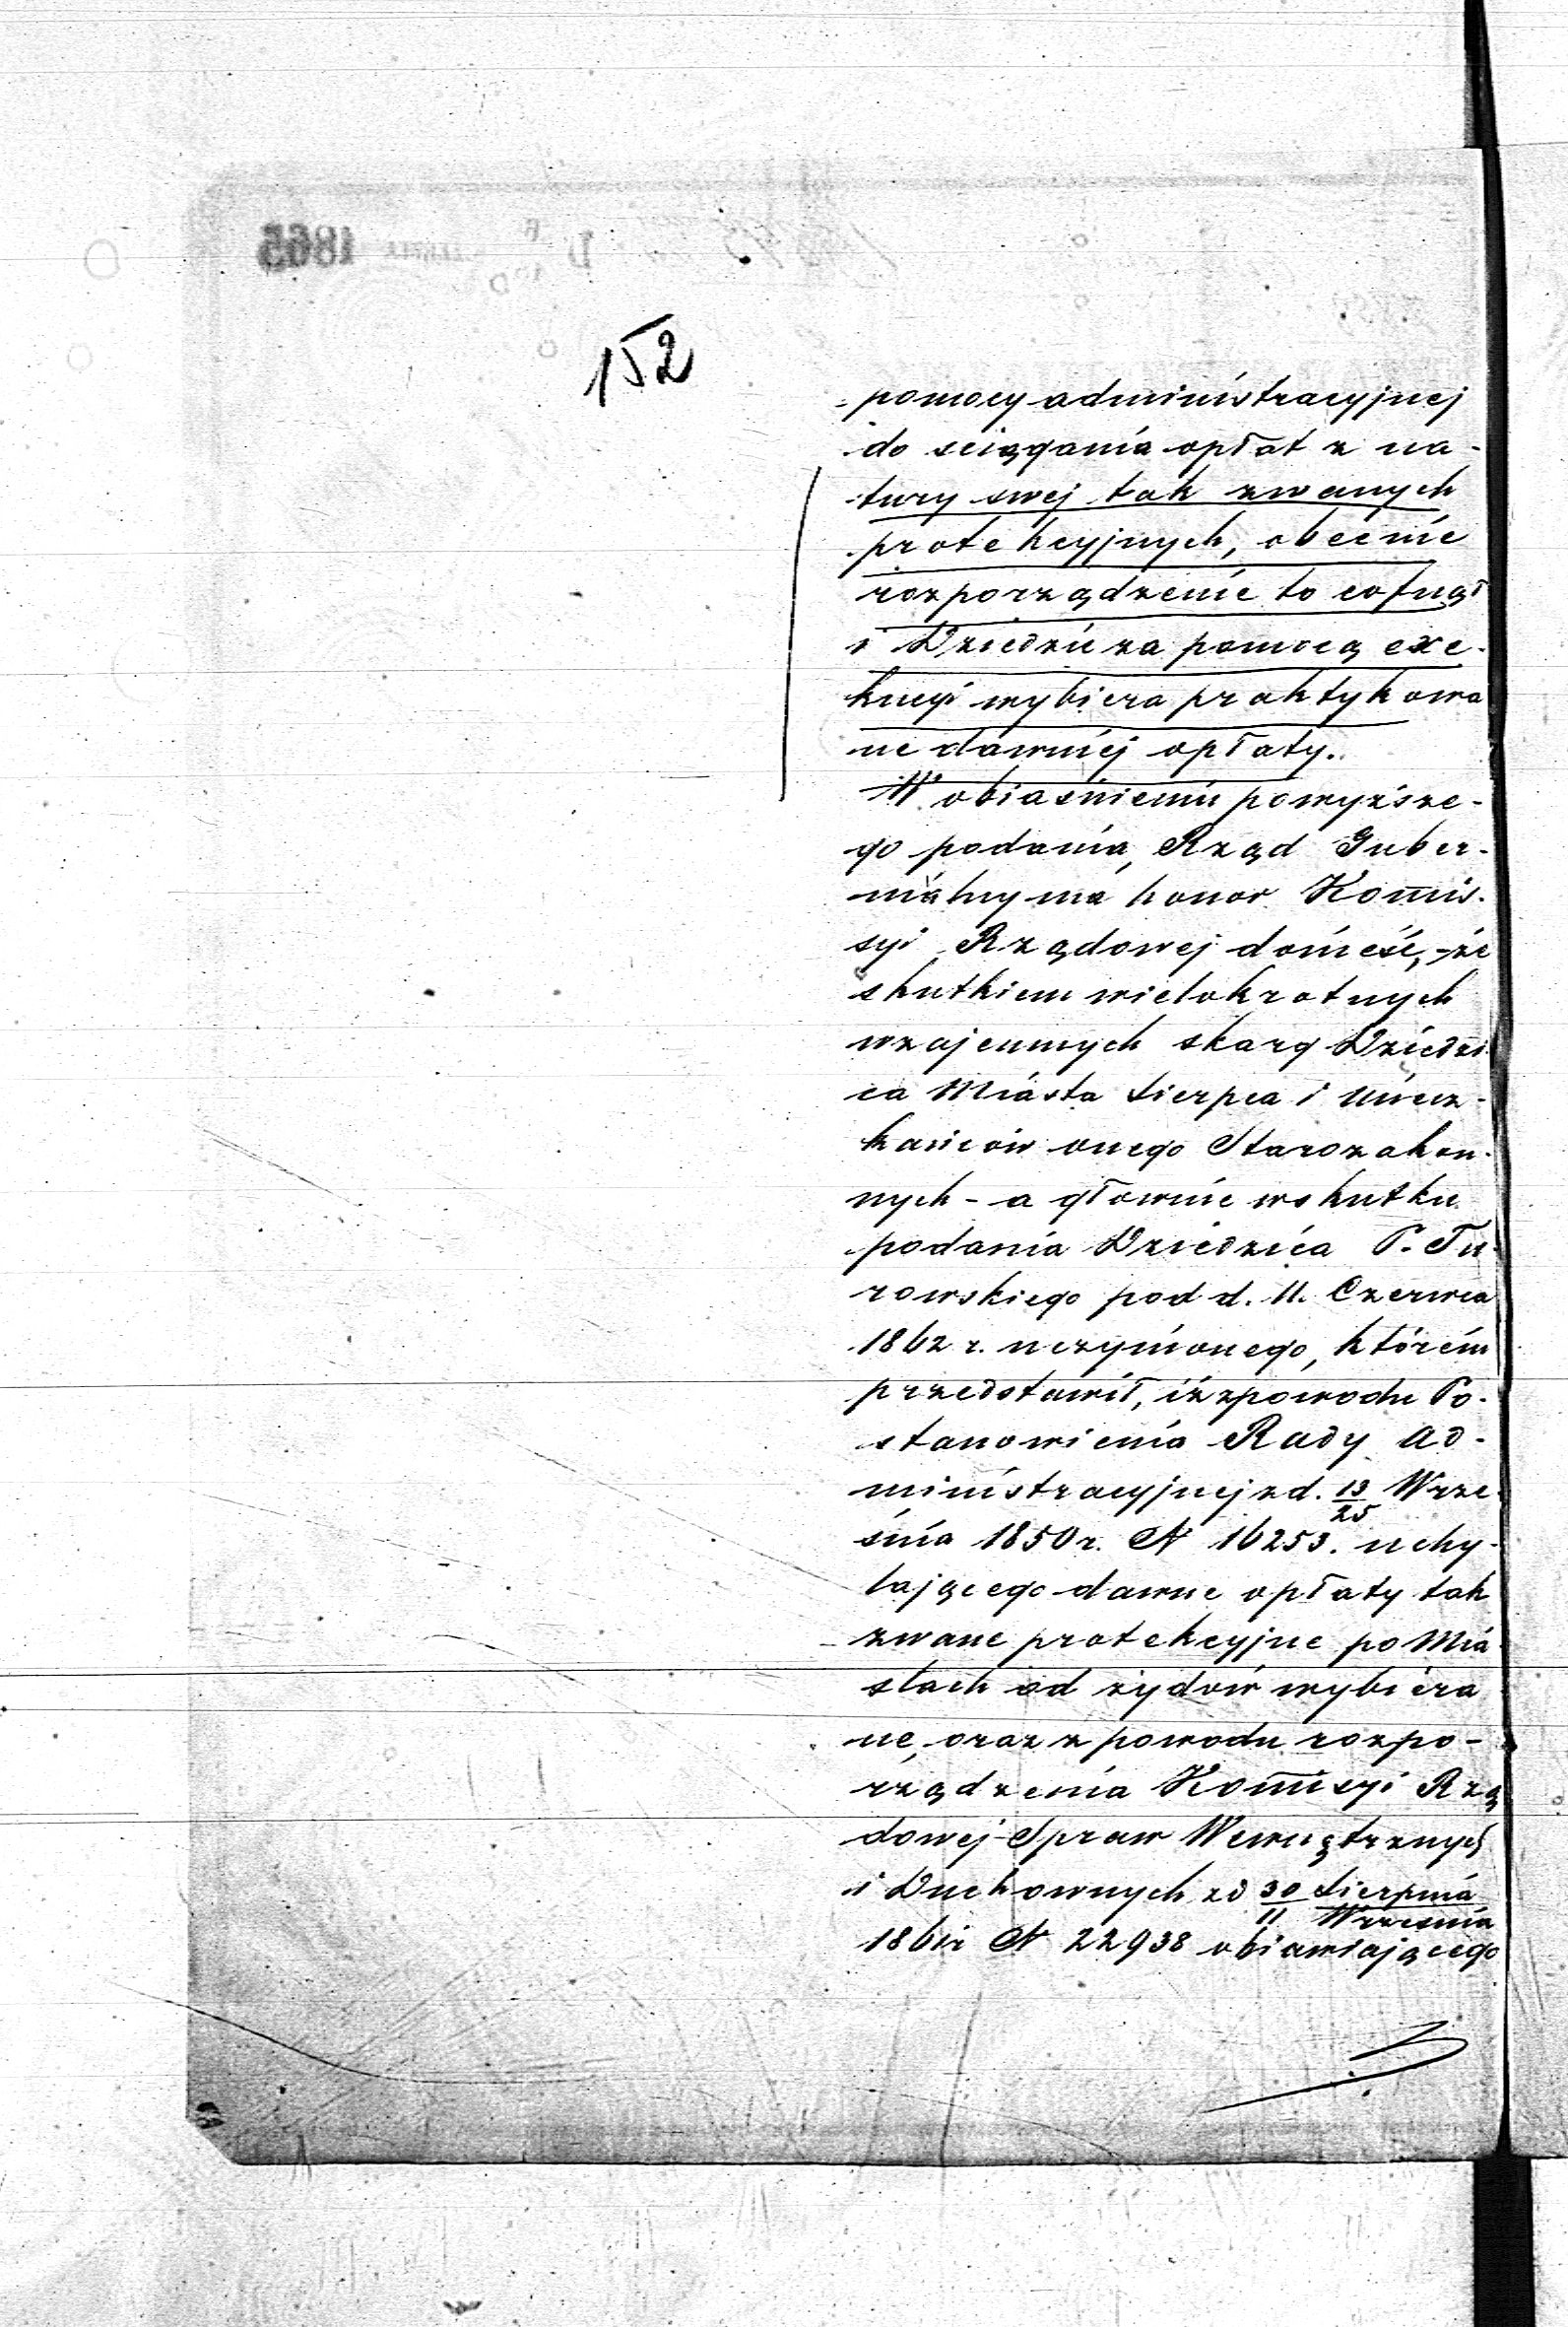 152
pomocy administracyjnej
do sciągania opłat z na-
tury swej tak zwanych
protekcyjnych, obecnie
rozporządzenie to cofnął
i Dziedzic za pomocą exe-
kucyi wybiera praktykowa
ne dawniej opłaty.
W obiaśnieniu powyższe-
go podania, Rząd Guber-
nialny ma honor Kom̅is-
syi Rządowej donieść, że
skutkiem wielokrotnych
wzajemnych skarg Dziedzi
ca Miasta Sierpca i miesz-
kańców onego Starozakon-
nych - a głownie wskutku
podania Dziedzica P. Tu-
rowskiego pod d. 11. Czerwca
1862 r. uczynionego, którém
przedstawił, iż zpowodu Po-
stanowienia Rady Ad-
ministracyjnej z d. 13/25 Wrze-
śnia 1850 r. N 16253. uchy-
lającego dawne opłaty tak
zwane protekcyjne po Mia
stach od żydów wybiera
ne, oraz z powodu rozpo-
rządzenia Kom̅isyi Rzą
dowej Spraw Wewnętrznych
i Duchownych zd 30 Sierpnia / 11 Września
1861r N 22938 obiawiającego
1865